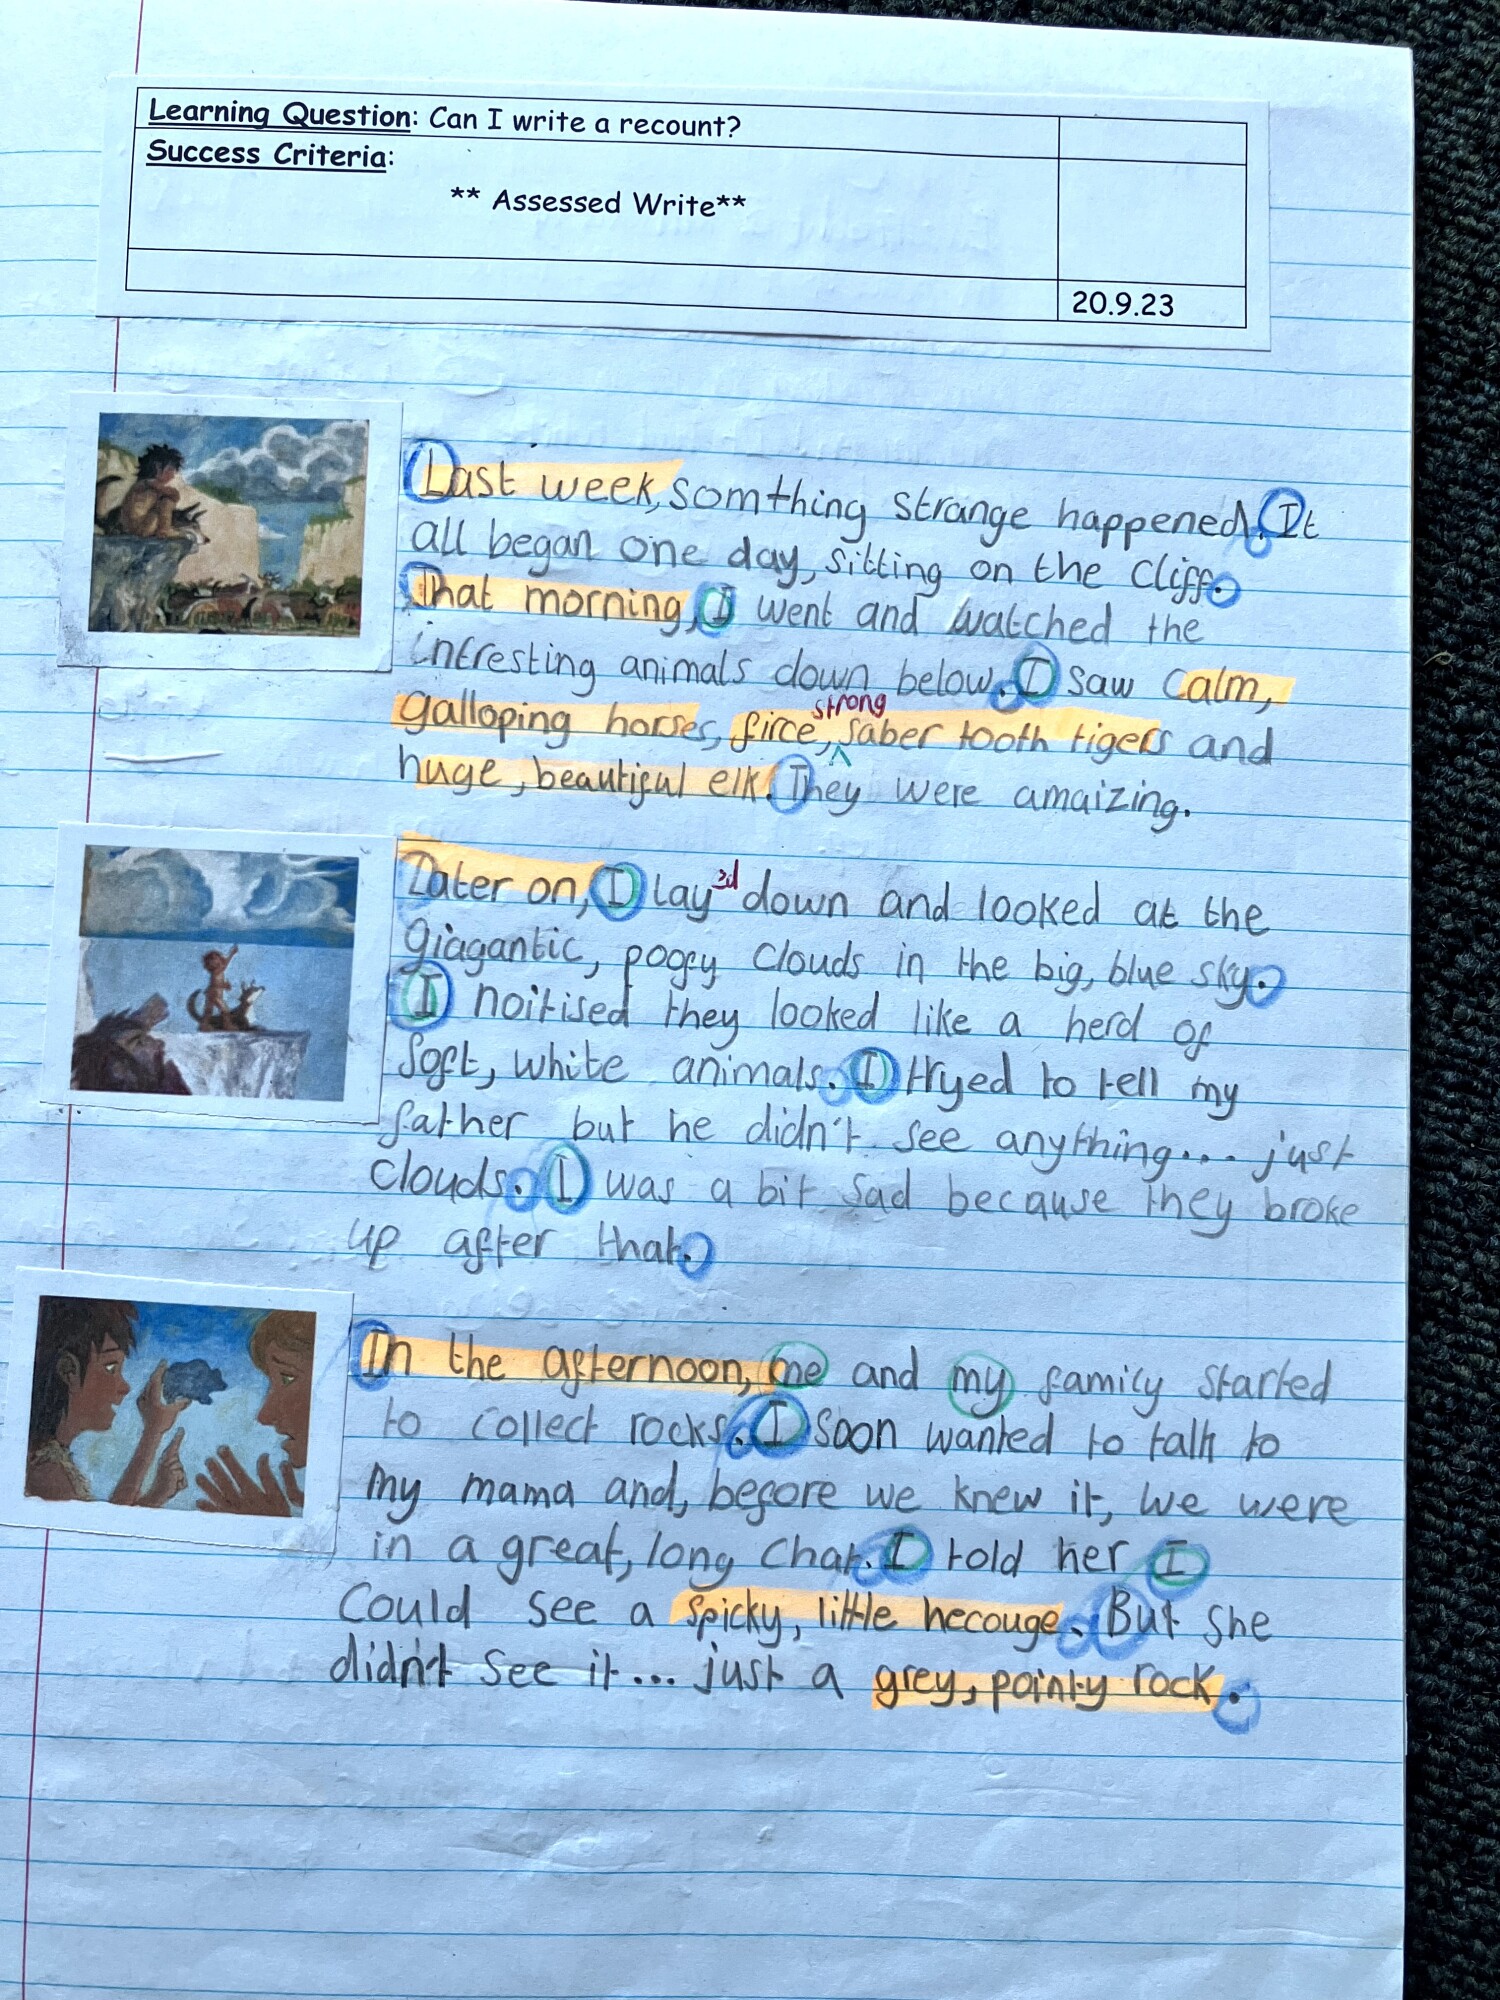 Learning Question: Can I write a recount?
Success Criteria:
** Assessed Write**
20.9.23
Last week, somthing strange happened. It
all began one day, sitting on the cliff.
That morning, I went and watched the
intresting animals down below. I saw calm,
galloping horses, firce, strong saber tooth tigers and
huge, beautiful elk. They were amaizing.
Later on, I lay down and looked at the
giagantic, poofy clouds in the big, blue sky.
I noitised they looked like a herd of
soft, white animals. I tryed to tell my
father but he didn't see anything... just
clouds. I was a bit sad because they broke
up after that.
In the afternoon, me and my family started
to collect rocks. I soon wanted to talk to
my mama and, before we knew it, we were
in a great, long chat. I told her I
could see a spicky, little hecouge. But she
didn't see it... just a grey, pointy rock.